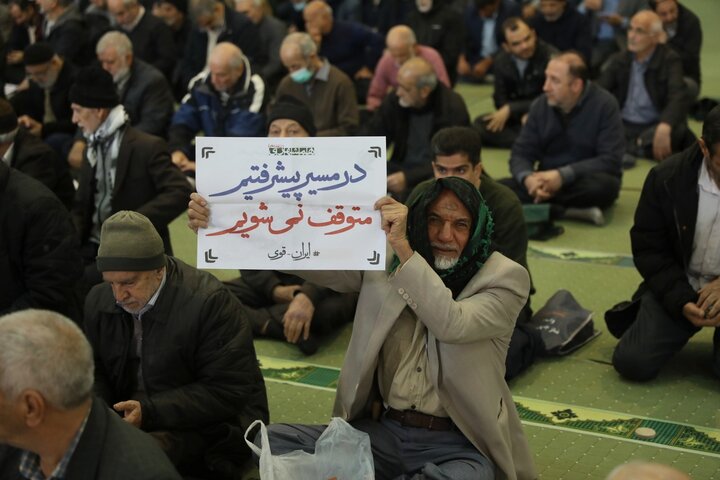 در مسیر پیشرفتیم
متوقف نمی شویم
#ایران_قوی